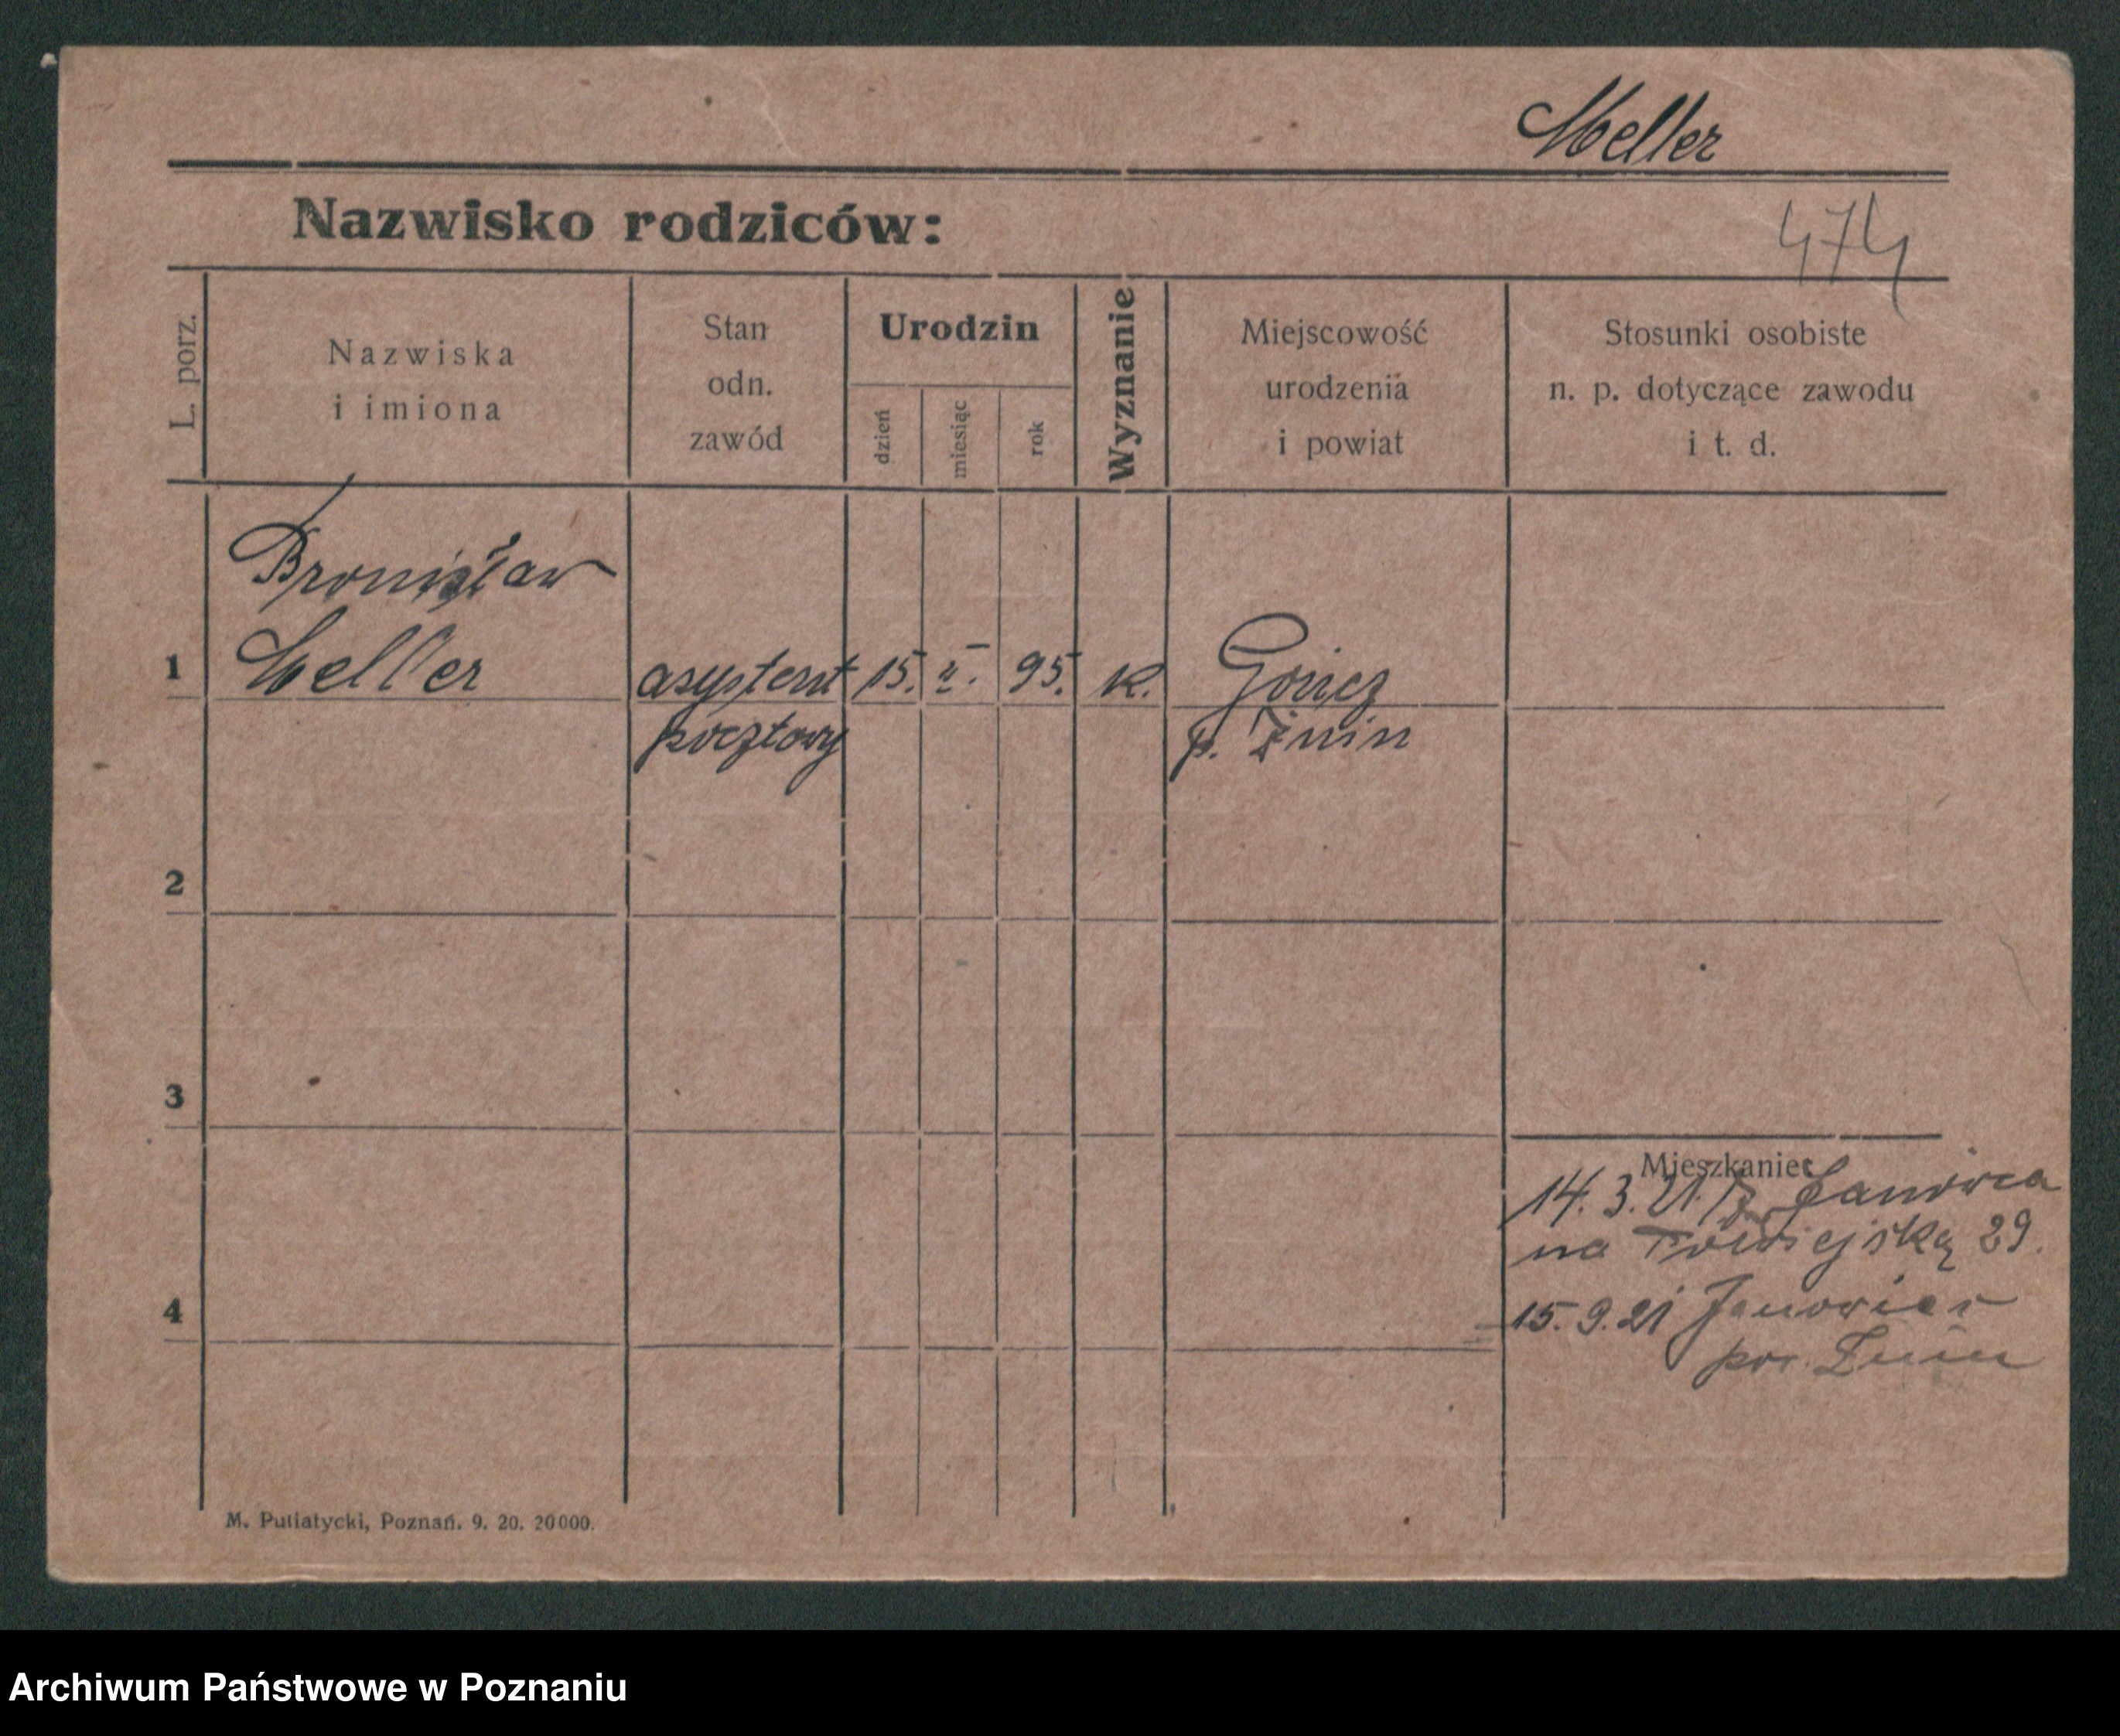 Meller
Nazwisko rodziców:
474
L. porz.
Nazwiska
i imiona
Stan
odn.
zawód
Urodzin
dzień
miesiąc
rok
Wyznanie
Miejscowość
urodzenia
i powiat
Stosunki osobiste
n. p. dotyczące zawodu
i t. d.
Bronisław
1 Meller asystent 15. II. 95. k.
pocztowy p. Żnin
2
3
Mieszkanie:
14. 3. 21. z Janówca
na Półwiejską 29.
4
15. 9. 21 Janowiec
pow. Żnin
M. Putiatycki, Poznań. 9. 20. 20000.
Archiwum Państwowe w Poznaniu